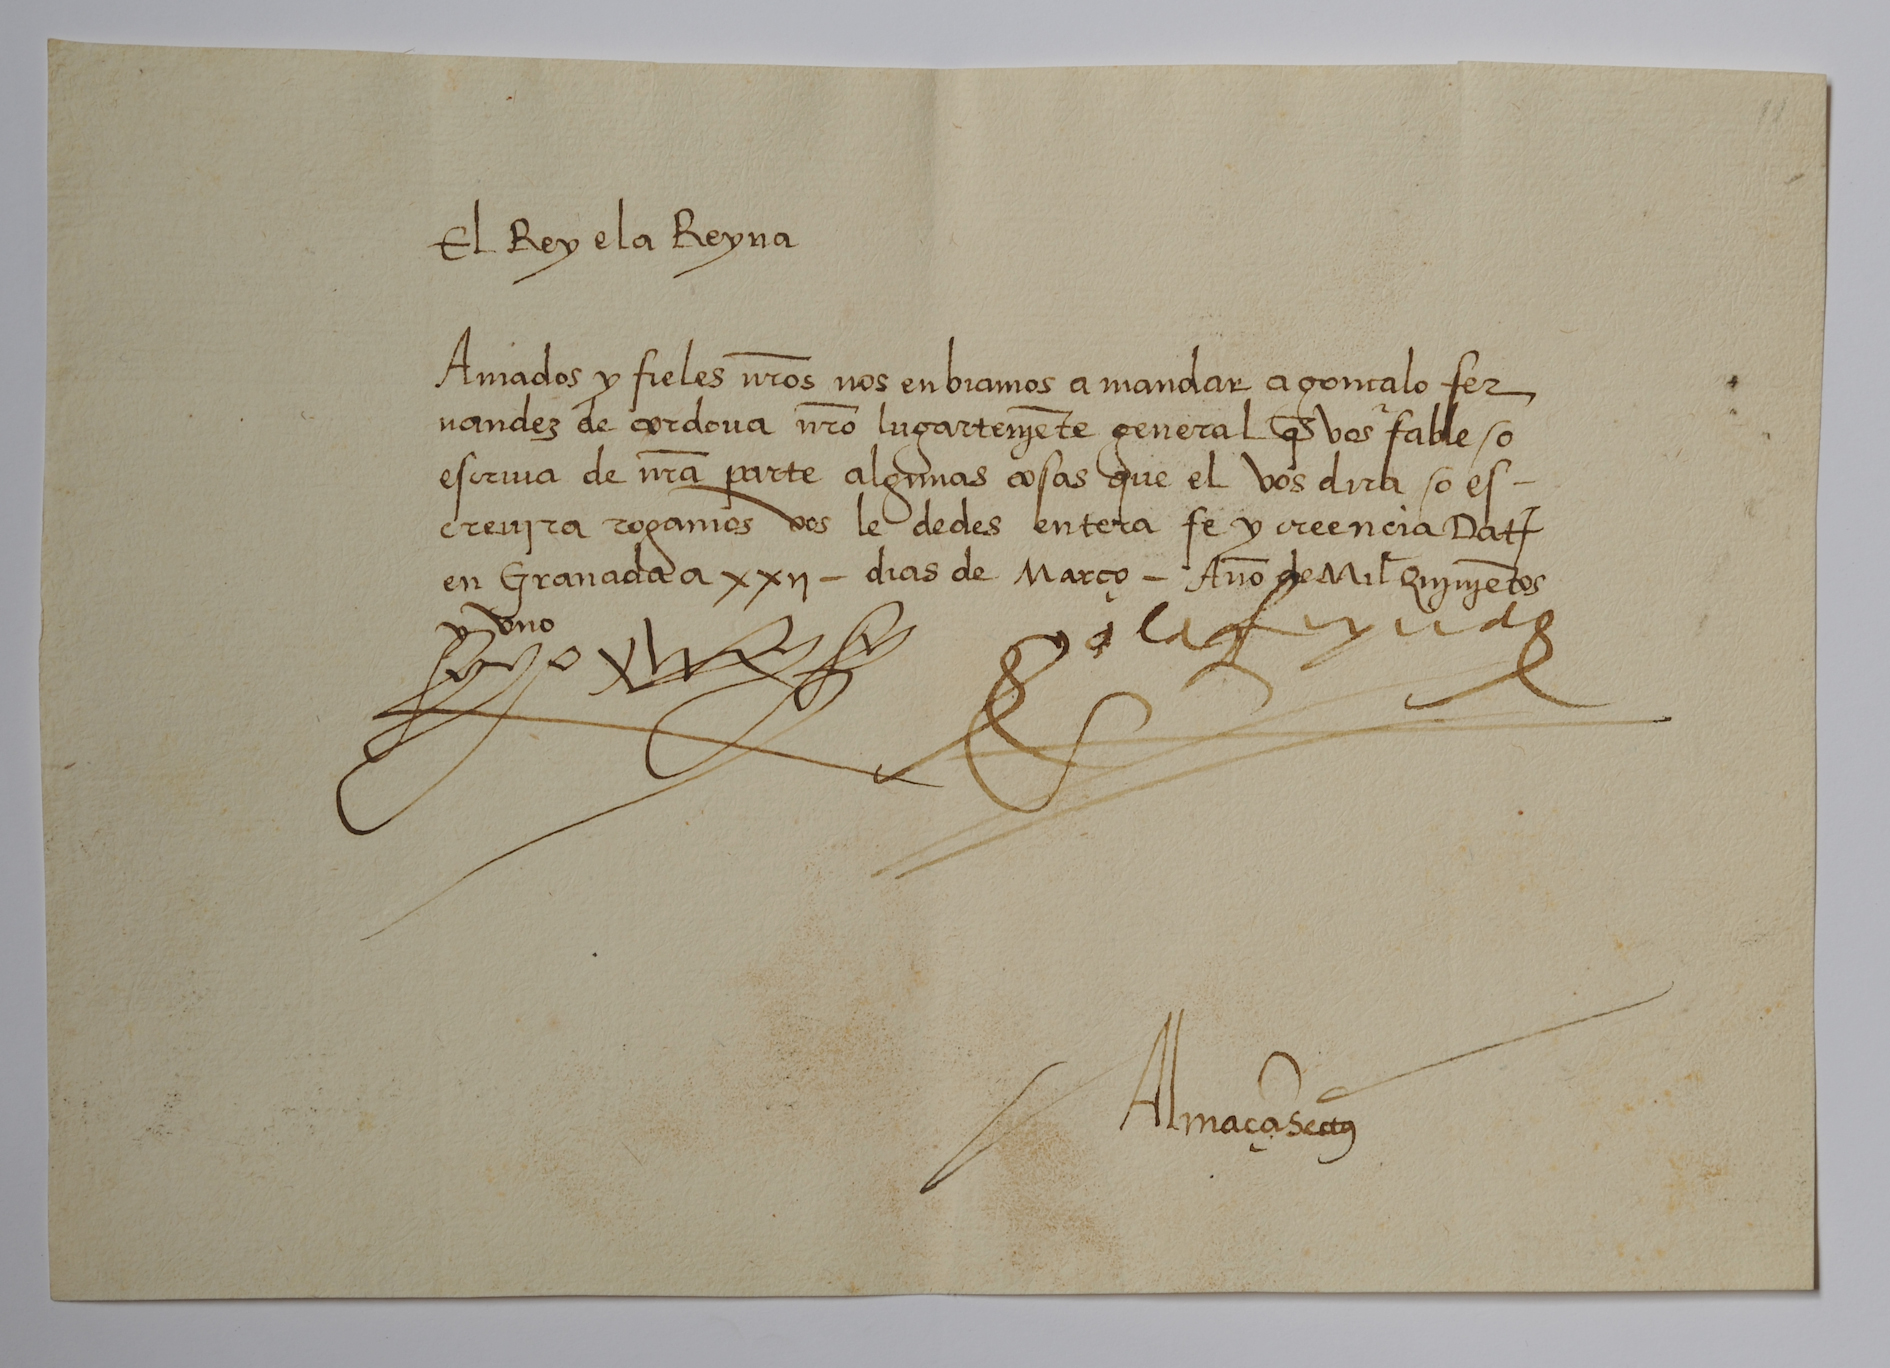 El Rey e la Reyna
Amados y fieles nr̄os nos enbiamos a mandar a goncalo fer
nandez de cordoua nr̄o lugartenye̅te general q̄ vos fable / o
escriua de nr̄a parte algunas cosas que el vos dira / o es-
creuira rogamos vos le dedes entera fe y creencia Dat̄
en Granada a xxij - dias de Março - Año de Mil Quinye̅tos
y vno
yo el Rey yo la Reyna
Almaçan secrs